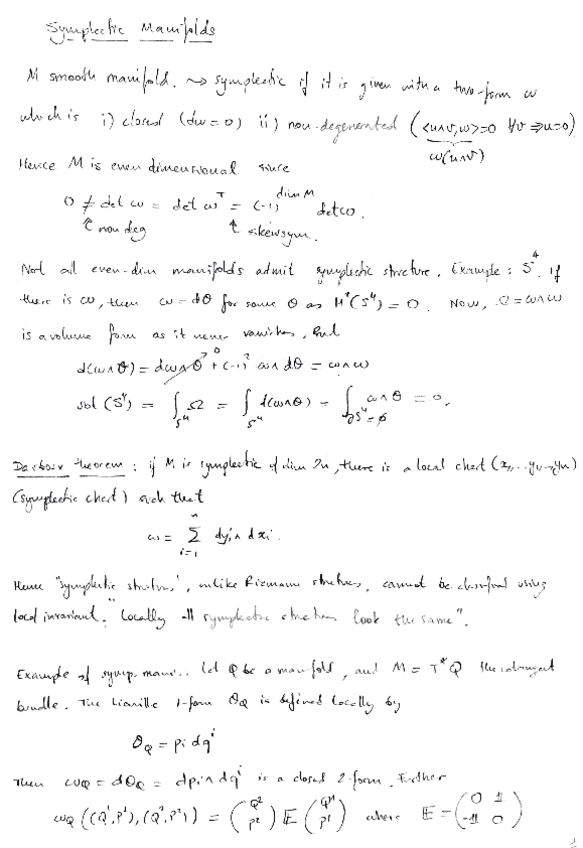 Symplectic Manifolds
M smooth manifold. ⇝ symplectic if it is given with a two-form ω
which is i) closed (dω = 0) ii) non-degenerated (<u∧v,ω>=0 ∀v ⇒ u=0)
ω(u∧v)
Hence M is even dimensional since
0 ≠ det ω = det ω^T = (-1)^{dim M} det ω.
↑ non deg ↑ skewsym.
Not all even-dim manifolds admit symplectic structure. Example: S^4. If
there is ω, then ω = dθ for some θ as H^2(S^4) = 0. Now, Ω = ω∧ω
is a volume form as it never vanishes, But
d(ω∧θ) = dω∧θ^0 + (-1)^2 ω∧dθ = ω∧ω
vol (S^4) = ∫_{S^4} Ω = ∫_{S^4} d(ω∧θ) = ∫_{∂S^4=∅} ω∧θ = 0.
Darboux theorem: if M is symplectic of dim 2n, there is a local chart (x_1,...y_1...y_n)
(symplectic chart) such that
ω = Σ_{i=1}^{n} dy_i ∧ dx_i.
Hence "symplectic structures", unlike Riemann structures, cannot be classified using
local invariant. "Locally all symplectic structures look the same".
Example of symp. mani.. Let Q be a manifold, and M = T*Q the cotangent
bundle. The Liouville 1-form θ_Q is defined locally by
θ_Q = p_i dq^i
Then ω_Q = dθ_Q = dp_i ∧ dq^i is a closed 2-form. Further
ω_Q ((Q^1,P^1),(Q^2,P^2)) = (Q^2 P^2) 𝔼 (Q^1 P^1) where 𝔼 = (0 𝟙 -𝟙 0)
1